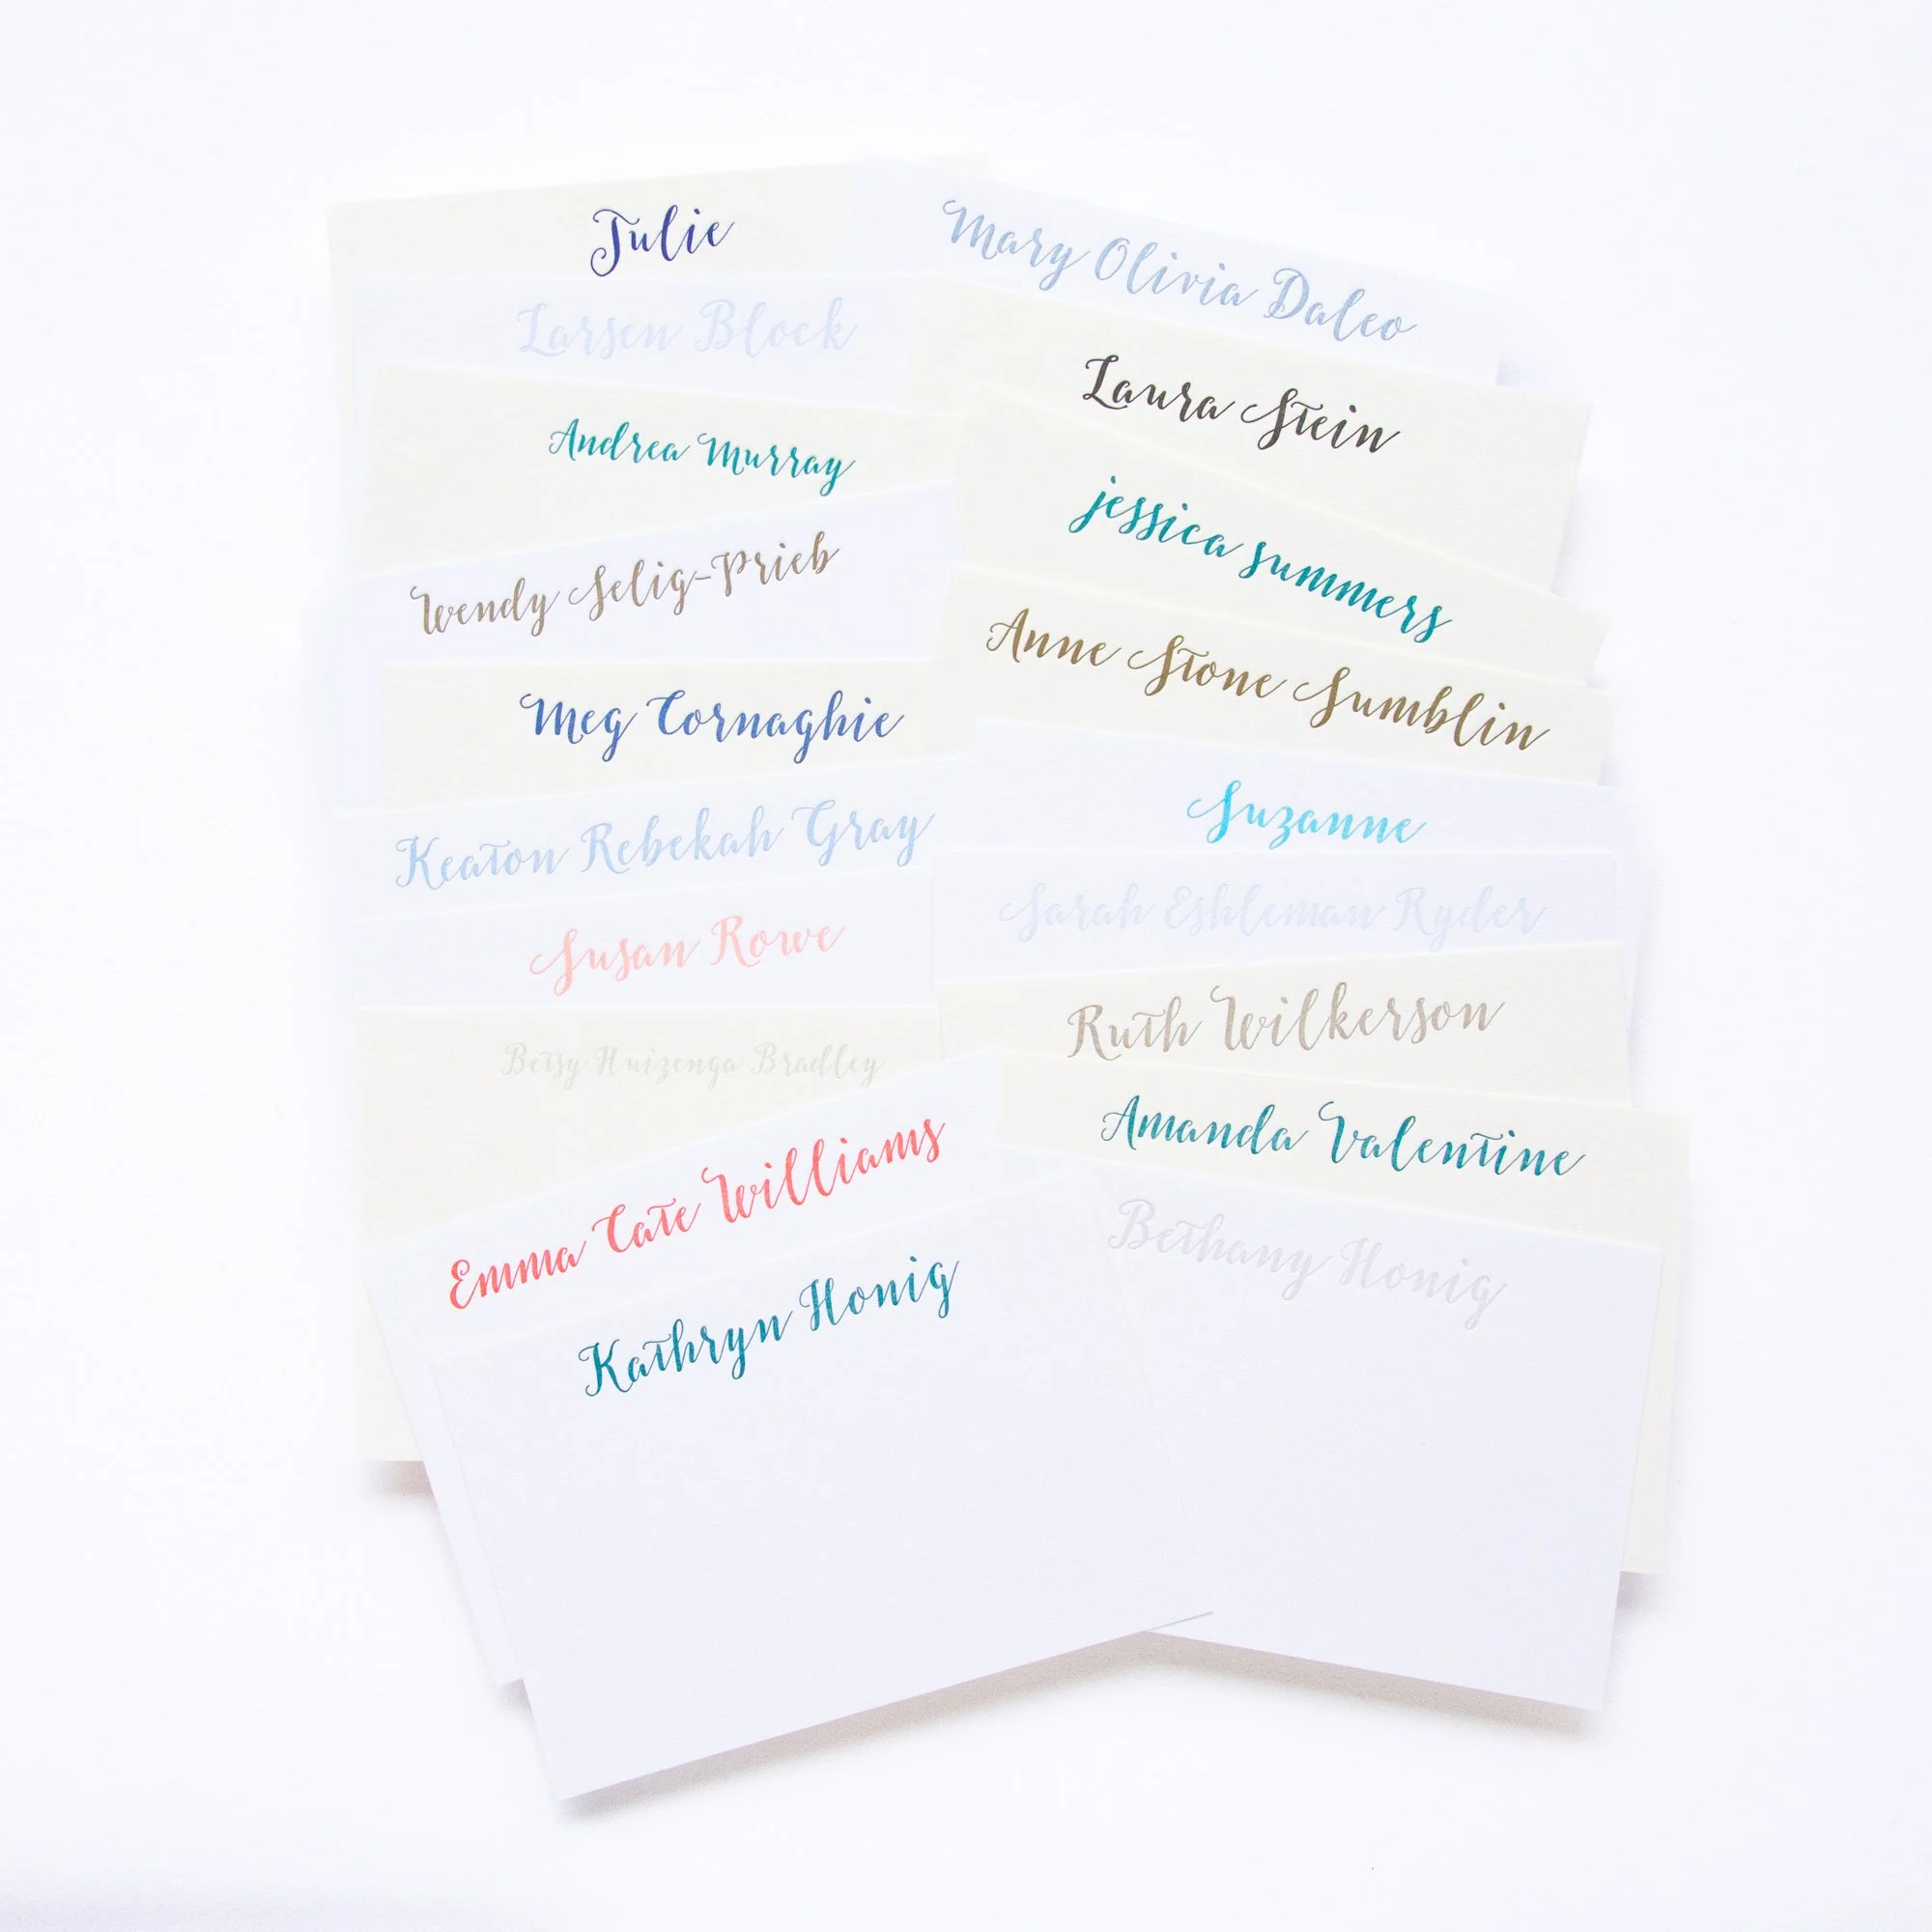 Julie
Larsen Block
Andrea Murray
Wendy Selig-Prieb
Meg Cornaghie
Keaton Rebekah Gray
Susan Rowe
Betsy Huizenga Bradley
Emma Cate Williams
Kathryn Honig
Mary Olivia Daleo
Laura Stein
jessica summers
Anne Stone Sumblin
Suzanne
Sarah Eshleman Ryder
Ruth Wilkerson
Amanda Valentine
Bethany Honig